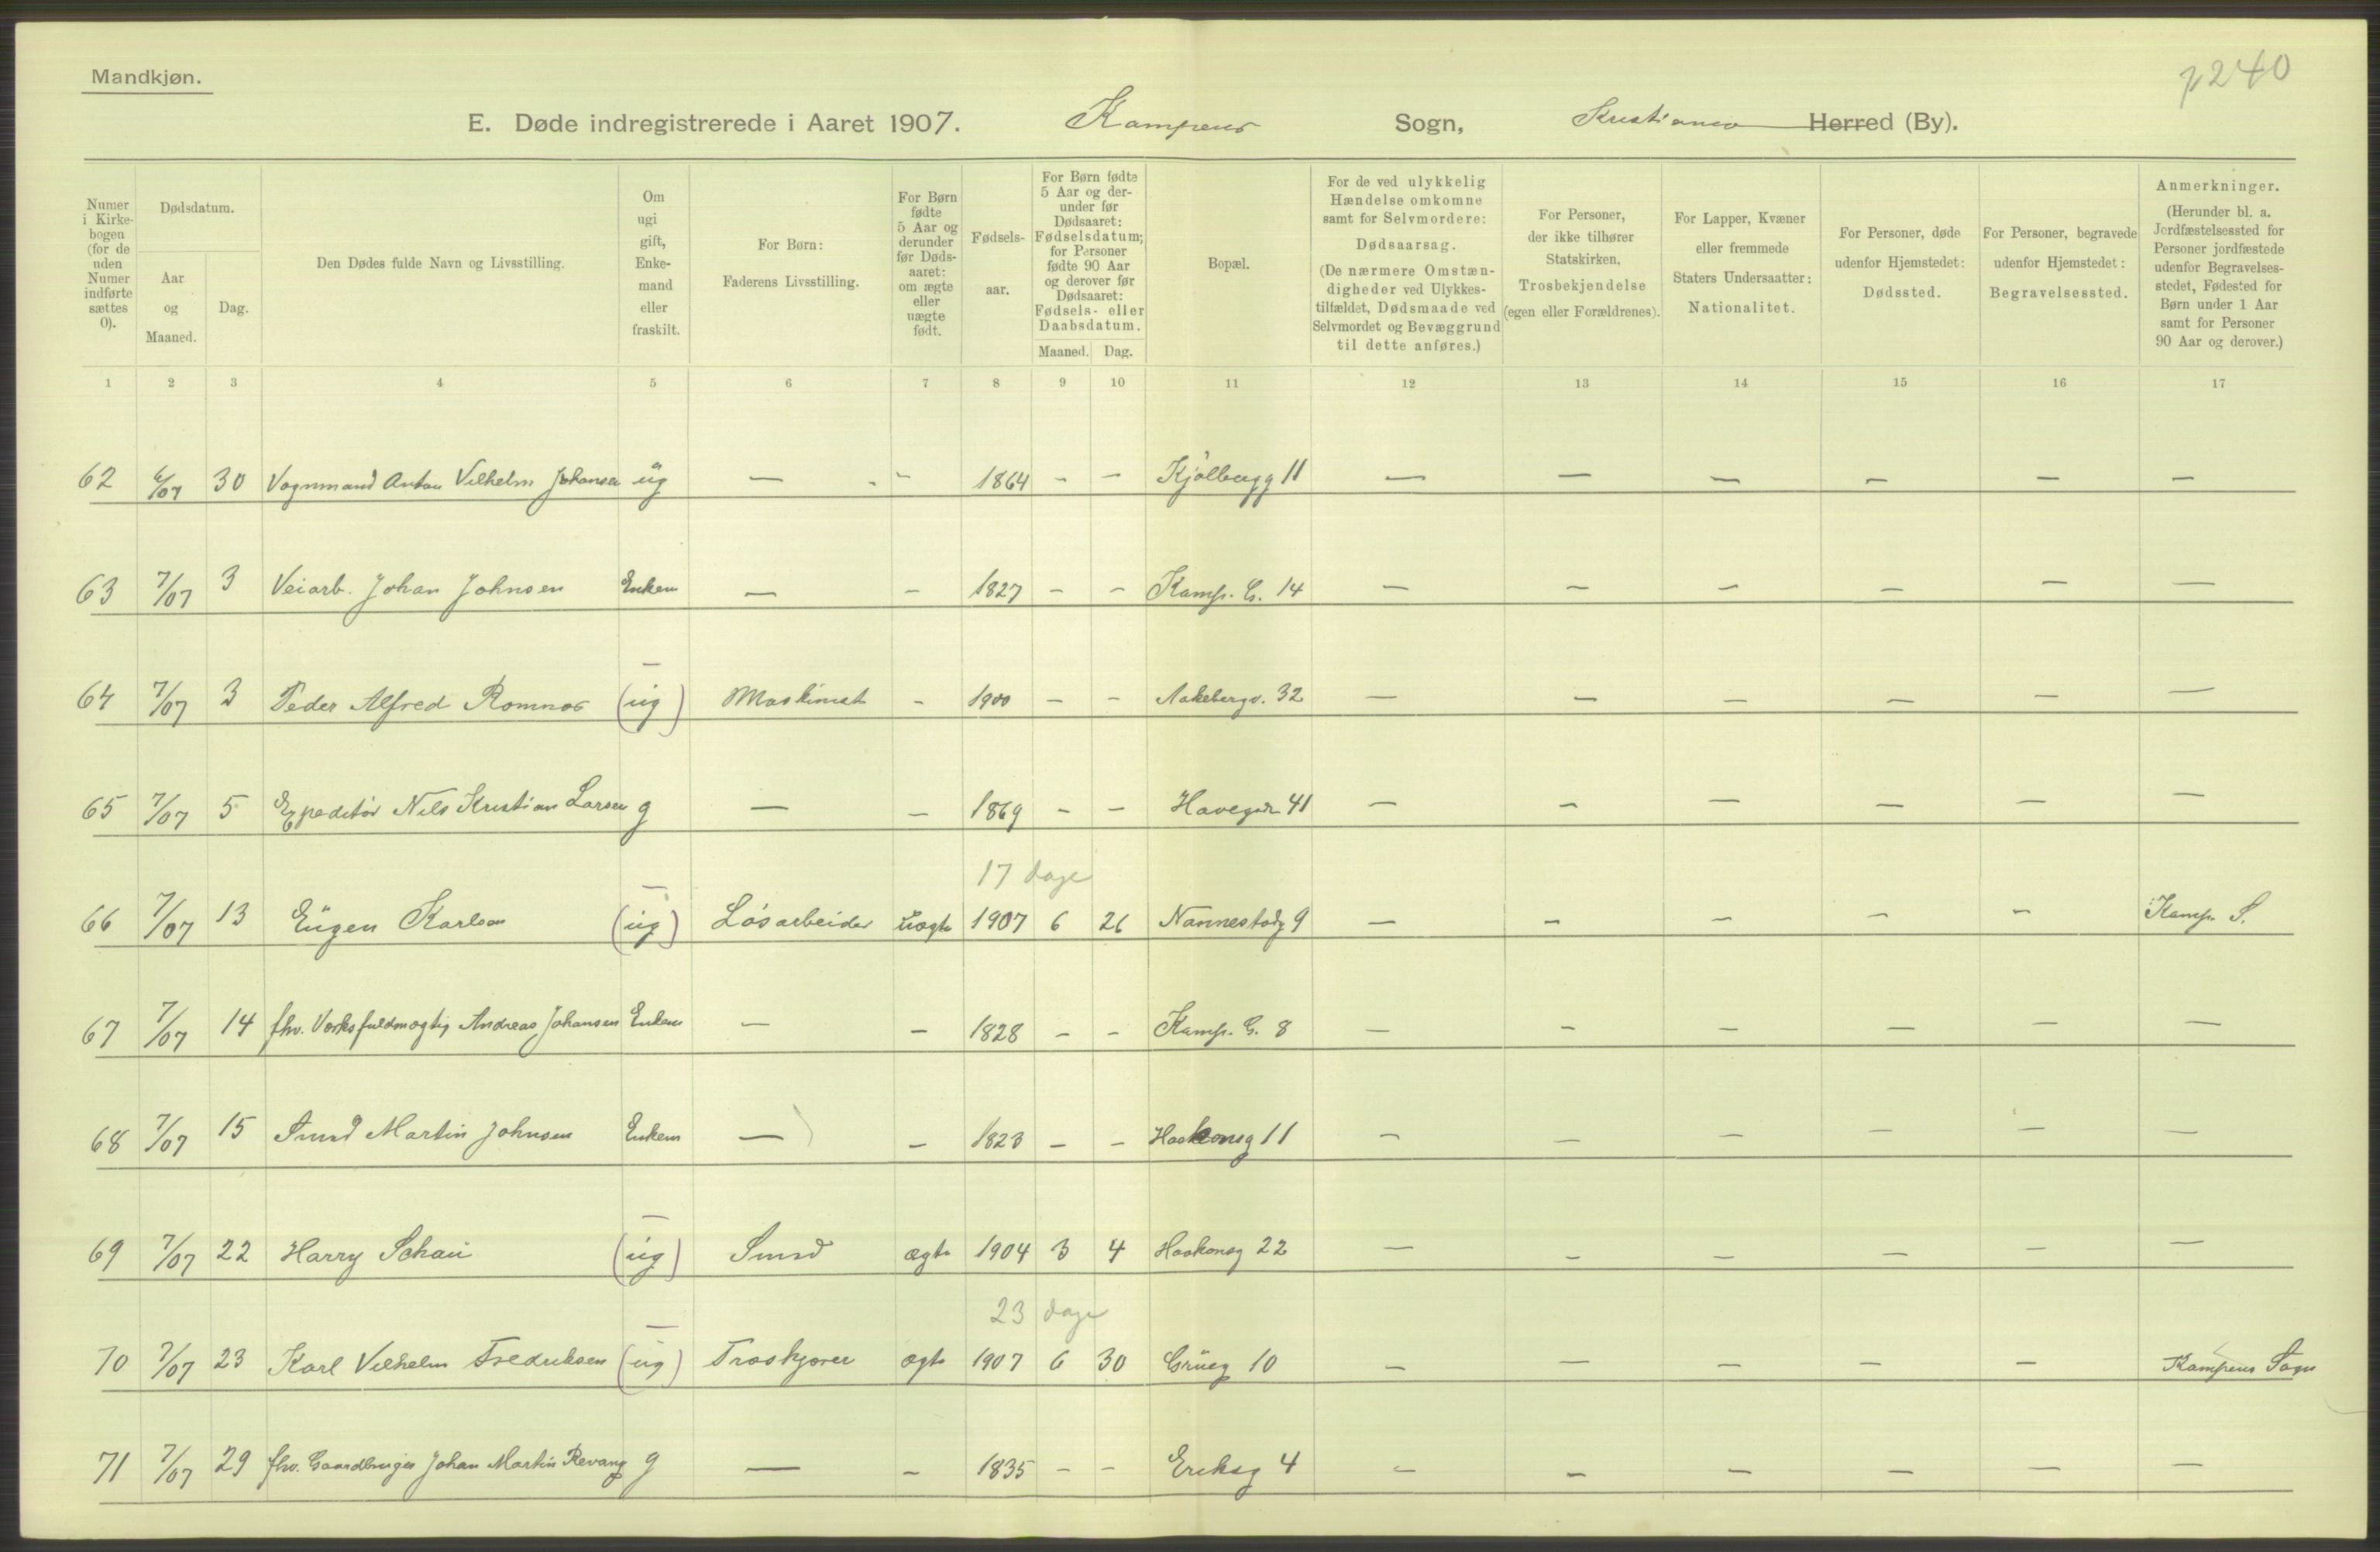 Mandkjøn.
p 240
E. Døde indregistrerede i Aaret 1907. Kampens Sogn, Kristiania Herred (By).
Numer i Kirkebogen (for de uden Numer indførte sættes 0).
Dødsdatum.
Aar og Maaned.
Dag.
Den Dødes fulde Navn og Livsstilling.
Om ugift, gift, Enkemand eller fraskilt.
For Børn: Faderens Livsstilling.
For Børn fødte 5 Aar og derunder før Dødsaaret: om ægte eller uægte født.
Fødselsaar.
For Børn fødte 5 Aar og derunder før Dødsaaret: Fødselsdatum; for Personer fødte 90 Aar og derover før Dødsaaret: Fødsels- eller Daabsdatum.
Maaned. Dag.
Bopæl.
For de ved ulykkelig Hændelse omkomne samt for Selvmordere: Dødsaarsag. (De nærmere Omstændigheder ved Ulykkestilfældet, Dødsmaade ved Selvmordet og Bevæggrund til dette anføres.)
For Personer, der ikke tilhører Statskirken, Trosbekjendelse (egen eller Forældrenes).
For Lapper, Kvæner eller fremmede Staters Undersaatter: Nationalitet.
For Personer, døde udenfor Hjemstedet: Dødssted.
For Personer, begravede udenfor Hjemstedet: Begravelsessted.
Anmerkninger. (Herunder bl. a. Jordfæstelsessted for Personer jordfæstede udenfor Begravelsesstedet, Fødested for Børn under 1 Aar samt for Personer 90 Aar og derover.)
1 2 3 4 5 6 7 8 9 10 11 12 13 14 15 16 17
62 6/07 30 Vognmand Anton Vilhelm Johansen ug — - 1864 - - Kjølbergg 11 — — — — — —
63 7/07 3 Veiarb. Johan Johnsen Enkem — - 1827 - - Kamp. G. 14 — — — — — —
64 7/07 3 Peder Alfred Romnos (ug) Maskinist - 1900 - - Aakebergv. 32 — — — — — —
65 7/07 5 Expeditør Nils Kristian Larsen g — - 1869 - - Havegdn 41 — — — — — —
17 dage
66 7/07 13 Eugen Karlson (ug) Løsarbeider uægte 1907 6 26 Nannestadg 9 — — — — — Kamp. S.
67 7/07 14 fhv. Værksfuldmægtig Andreas Johansen Enkem — - 1828 - - Kamp. G. 8 — — — — — —
68 7/07 15 Smed Martin Johnsen Enkem — - 1823 - - Haakonsg 11 — — — — — —
69 7/07 22 Harry Schau (ug) Smed ægte 1904 3 4 Haakonsg 22 — — — — — —
23 dage
70 7/07 23 Karl Vilhelm Fredriksen (ug) Træskjærer ægte 1907 6 30 Grueg 10 — — — — — Kampens Sogn
71 7/07 29 fhv. Gaardbruger Johan Martin Revang g — - 1835 - - Eriksg 4 — — — — — —